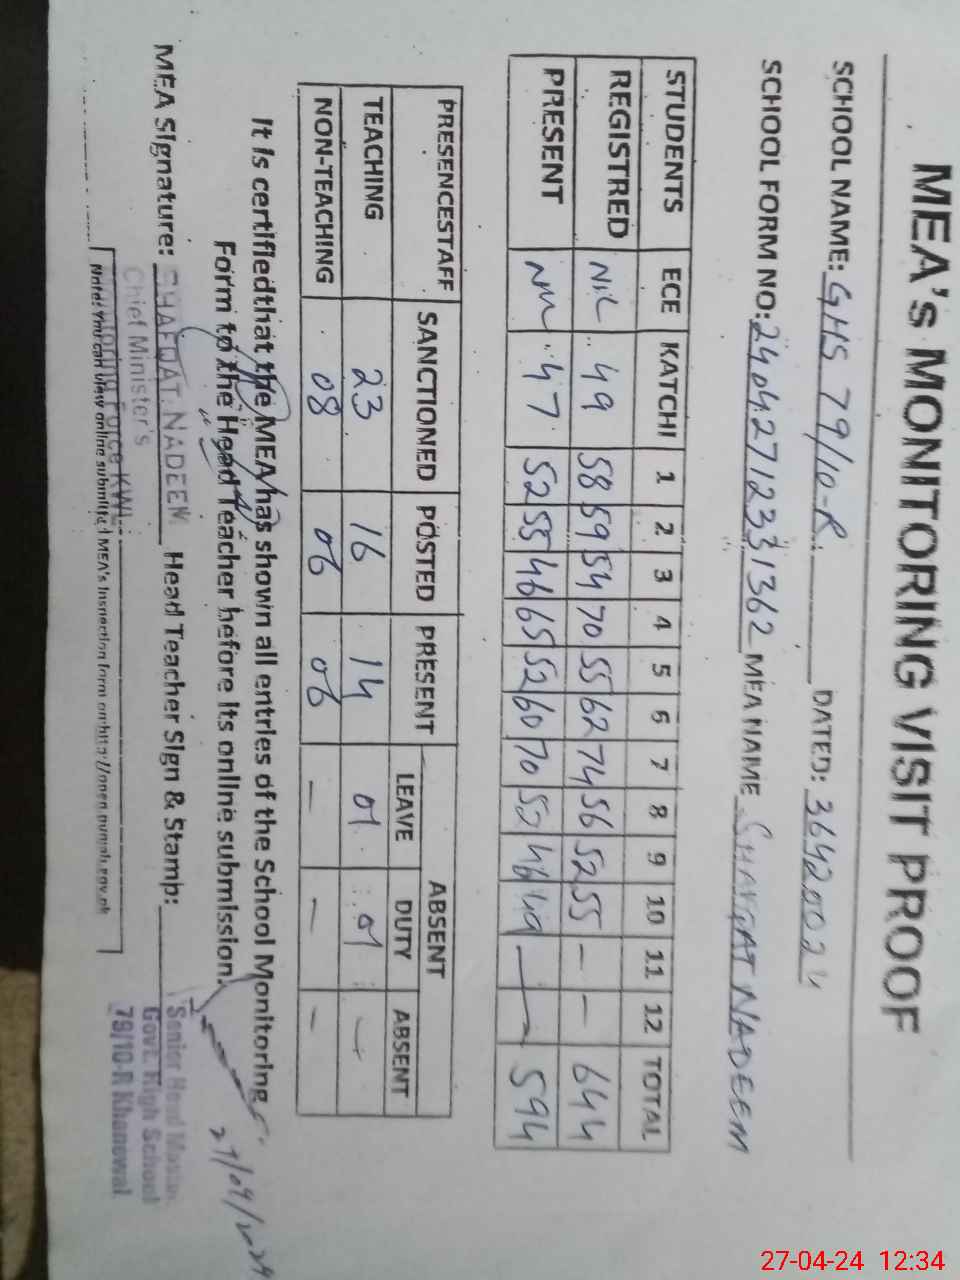 MEA's MONITORING VISIT PROOF
SCHOOL NAME: GHS 79/10-R. DATED: 36420024
SCHOOL FORM NO: 24042712331362 MEA NAME SHAFQAT NADEEM
STUDENTS ECE KATCHI 1 2 3 4 5 6 7 8 9 10 11 12 TOTAL
REGISTRED NIL 49 58 59 54 70 55 62 74 56 52 55 — — 644
PRESENT 47 52 55 46 65 52 60 70 52 46 49 — — 594
PRESENCESTAFF SANCTIONED POSTED PRESENT ABSENT
LEAVE DUTY ABSENT
TEACHING 23 16 14 01 01 —
NON-TEACHING 08 06 06 — — —
It is certifiedthat the MEA has shown all entries of the School Monitoring
Form to the Head Teacher before its online submission.
27/04/2024
MEA Signature: SHAFQAT NADEEM Head Teacher Sign & Stamp:
Chief Minister's
Monitoring Force KWL
Senior Head Master
Govt. High School
79/10-R Khanewal
Note: You can view online submitted MEA's Inspection form on http://open.punjab.gov.pk
27-04-24 12:34